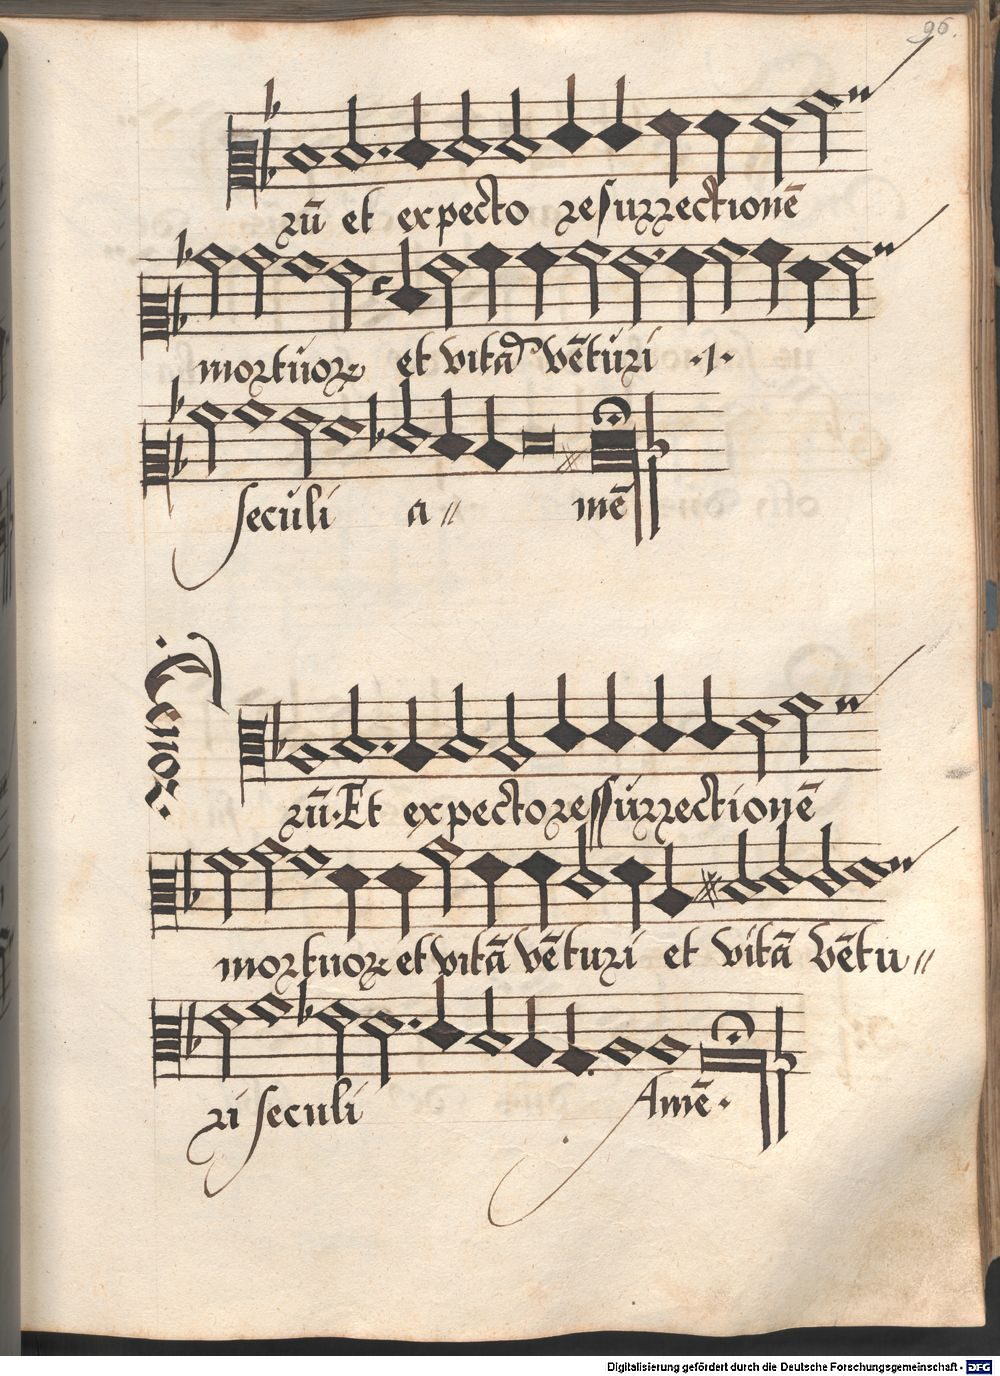 96.
rū et expecto resurrectionē
mortuoꝝ et vitā vēturi ·1·
seculi a〃 mē
Tenor.
rū·Et expecto ressurrectionē
mortuoꝝ et vitā vēturi et vitā vētu〃
ri seculi Amē·
Digitalisierung gefördert durch die Deutsche Forschungsgemeinschaft - DFG